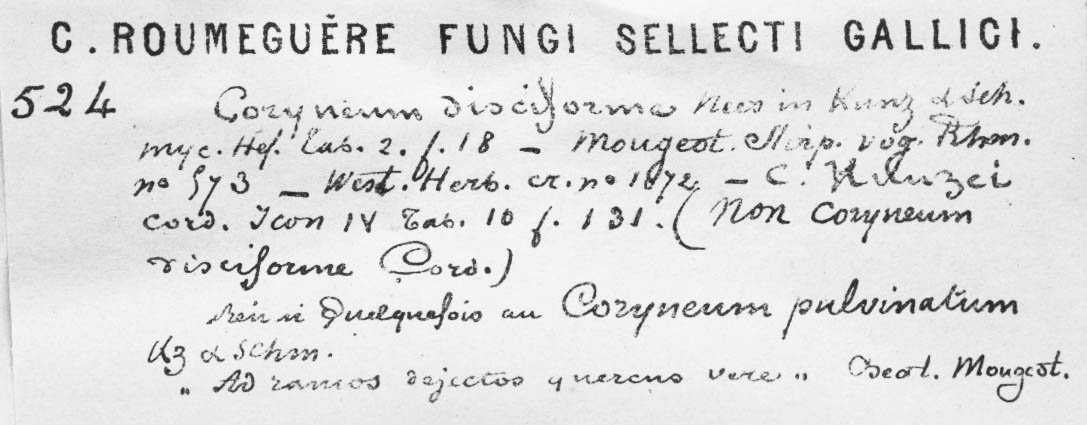 C. ROUMEGUÈRE FUNGI SELLECTI GALLICI.
524 Coryneum disciforme Nees in Kunz & Sch.
myc. Hef. Tab. 2. f. 18 — Mougeot. Stirp. vog. Rhen.
no 973 — West. Herb. cr. no 1072 — C. Kunzei
Cord. Icon IV Tab. 10 f. 131. (Non Coryneum
disciforme Cord.)
Réuni Quelquefois au Coryneum pulvinatum
Kz & Schm.
„ Ad ramos dejectos quercus vere „ Mougeot.